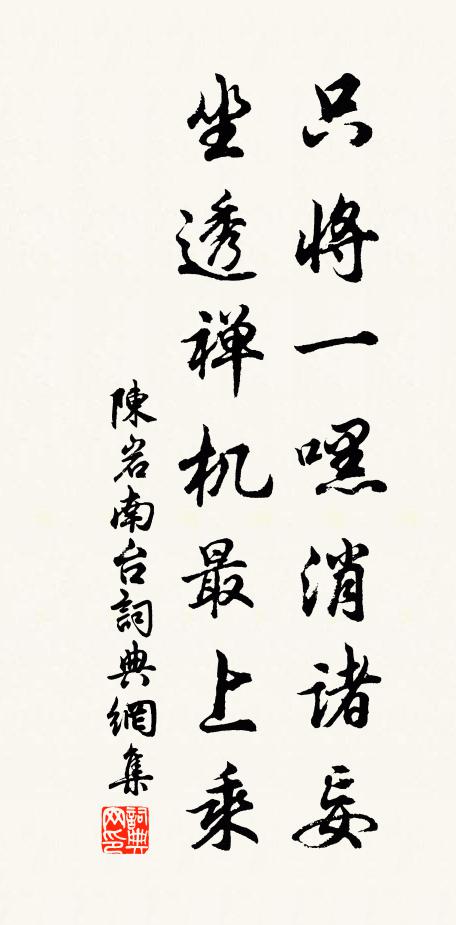 只将一嘿消诸妄
坐透禅机最上乘
陳岩南台詞典網集
詞典网印